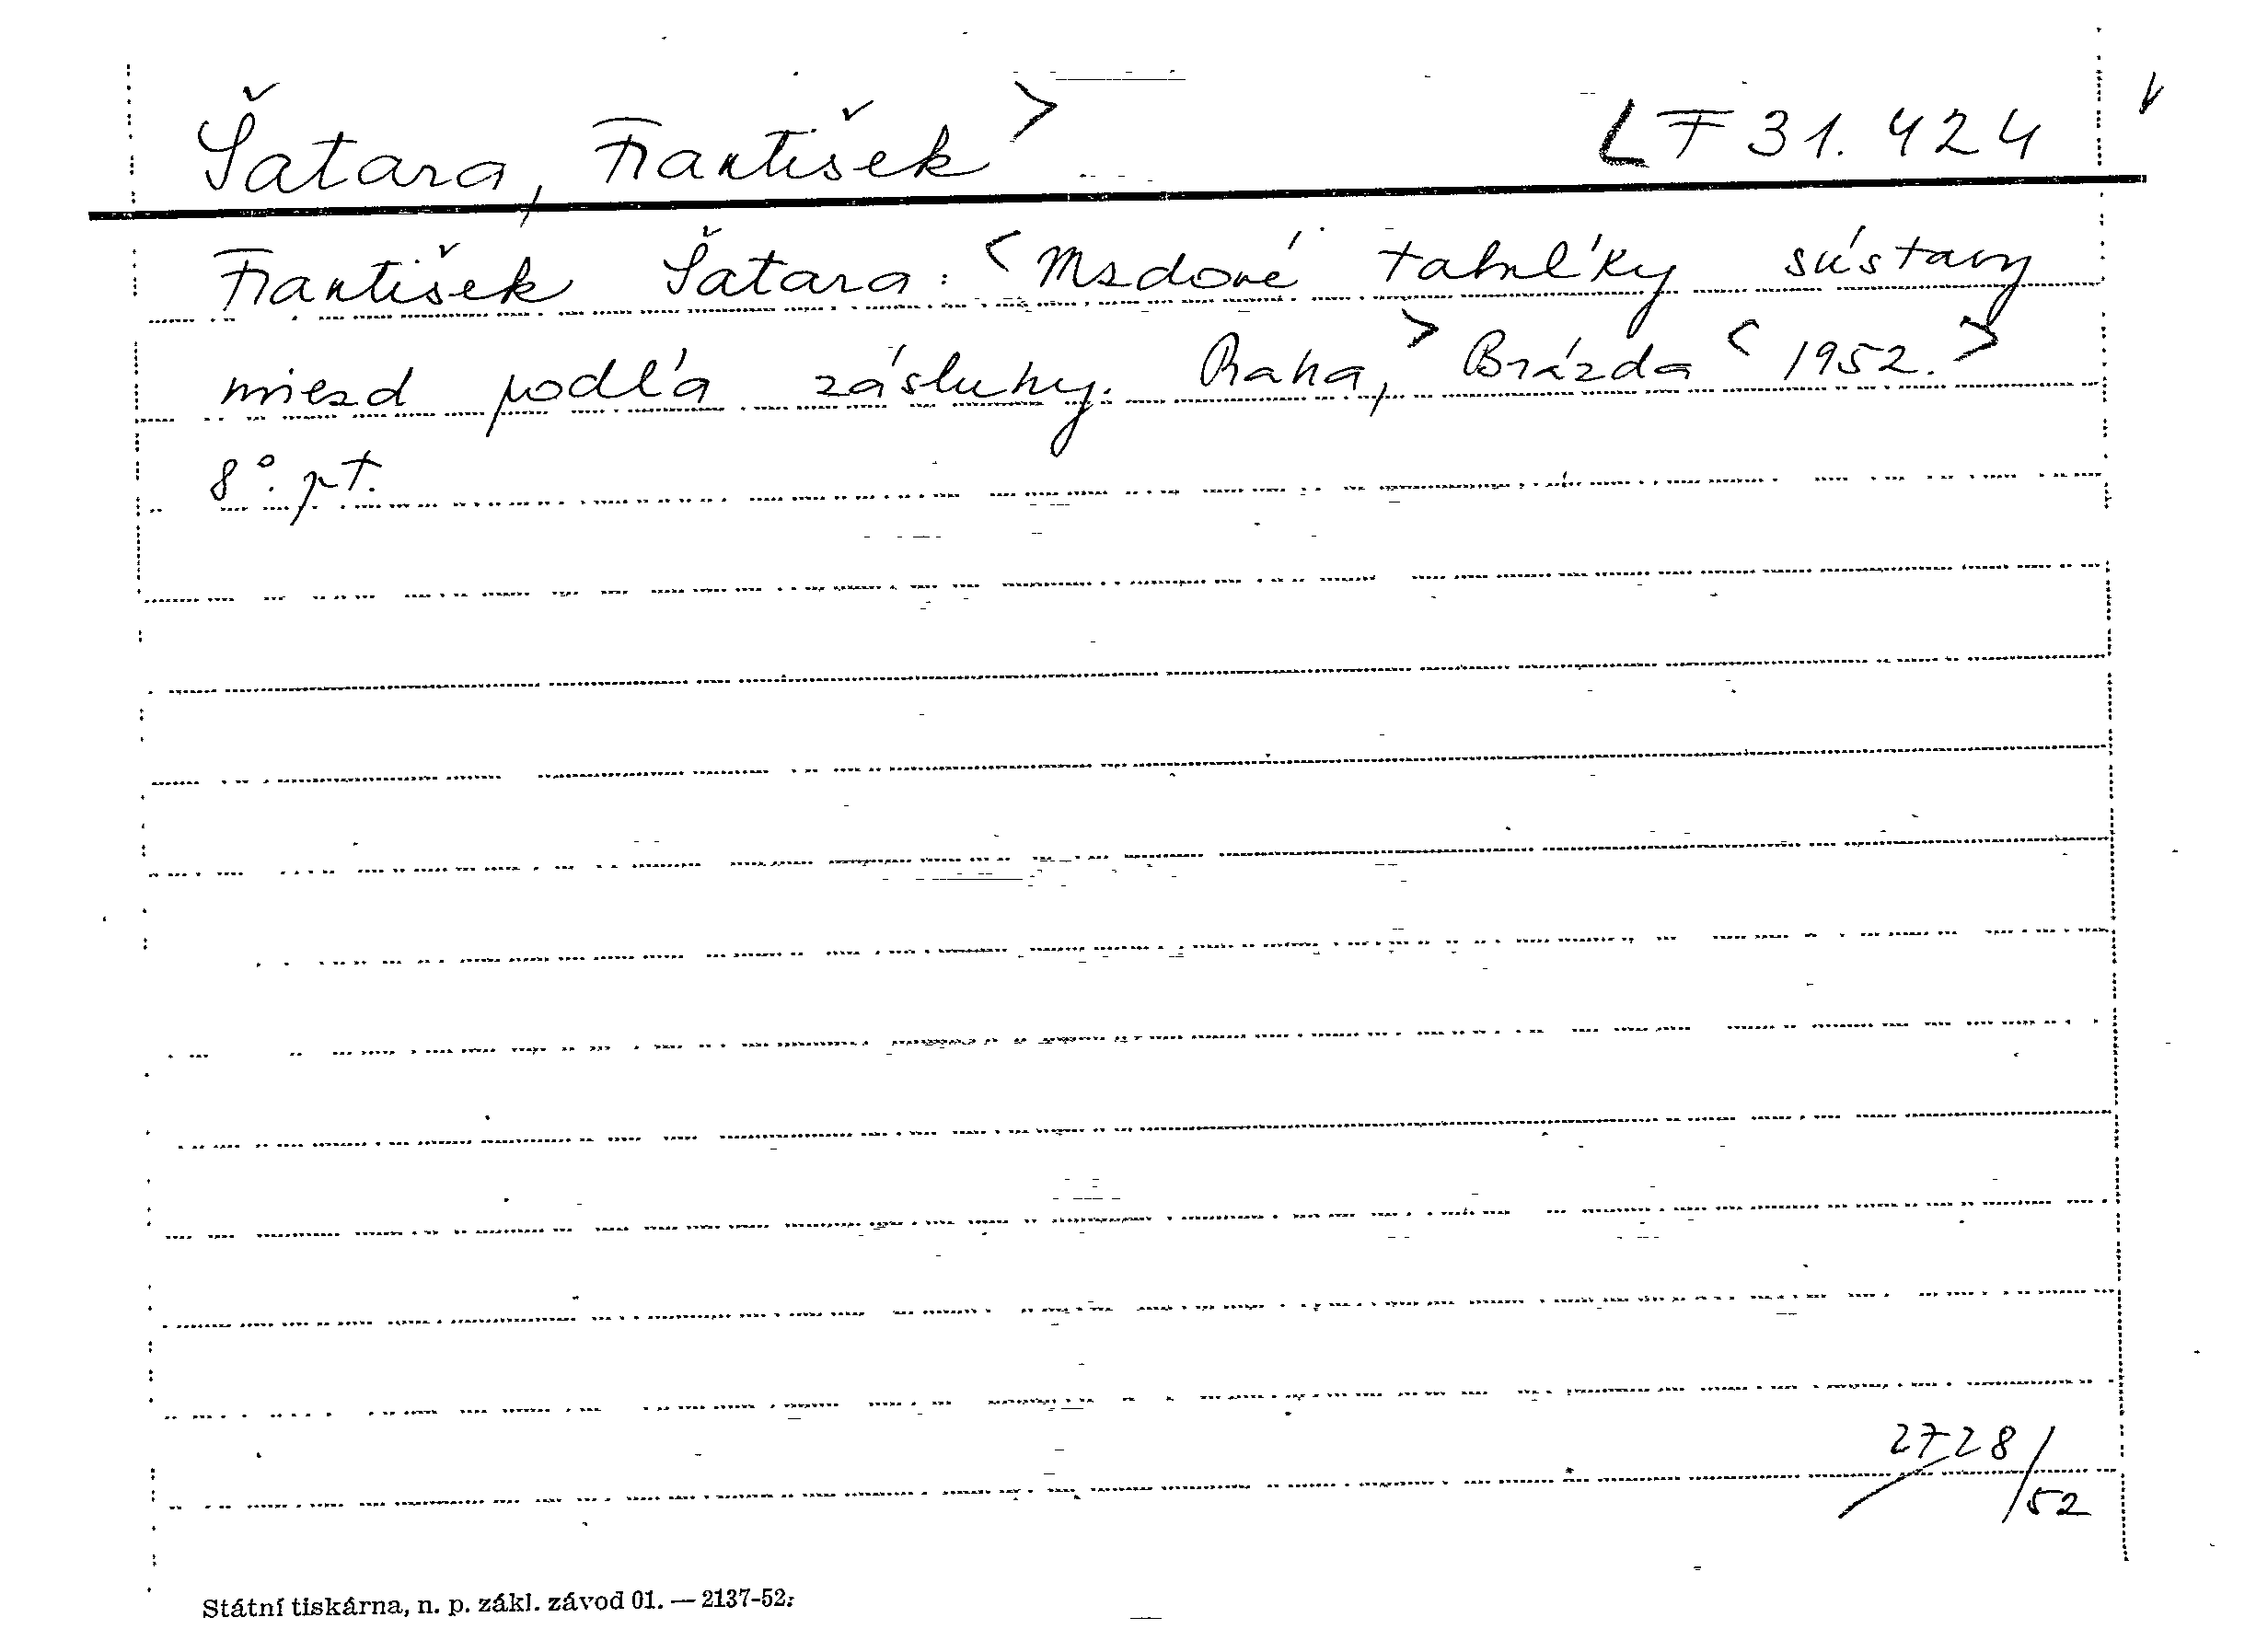 Šatara, František > LF 31.424
František Šatara: < Mzdové tabuľky sústavy
miezd podľa zásluhy. Praha, > Brázda < 1952. >
8°. pt.
2728/52
Státní tiskárna, n. p. zákl. závod 01. — 2137-52.